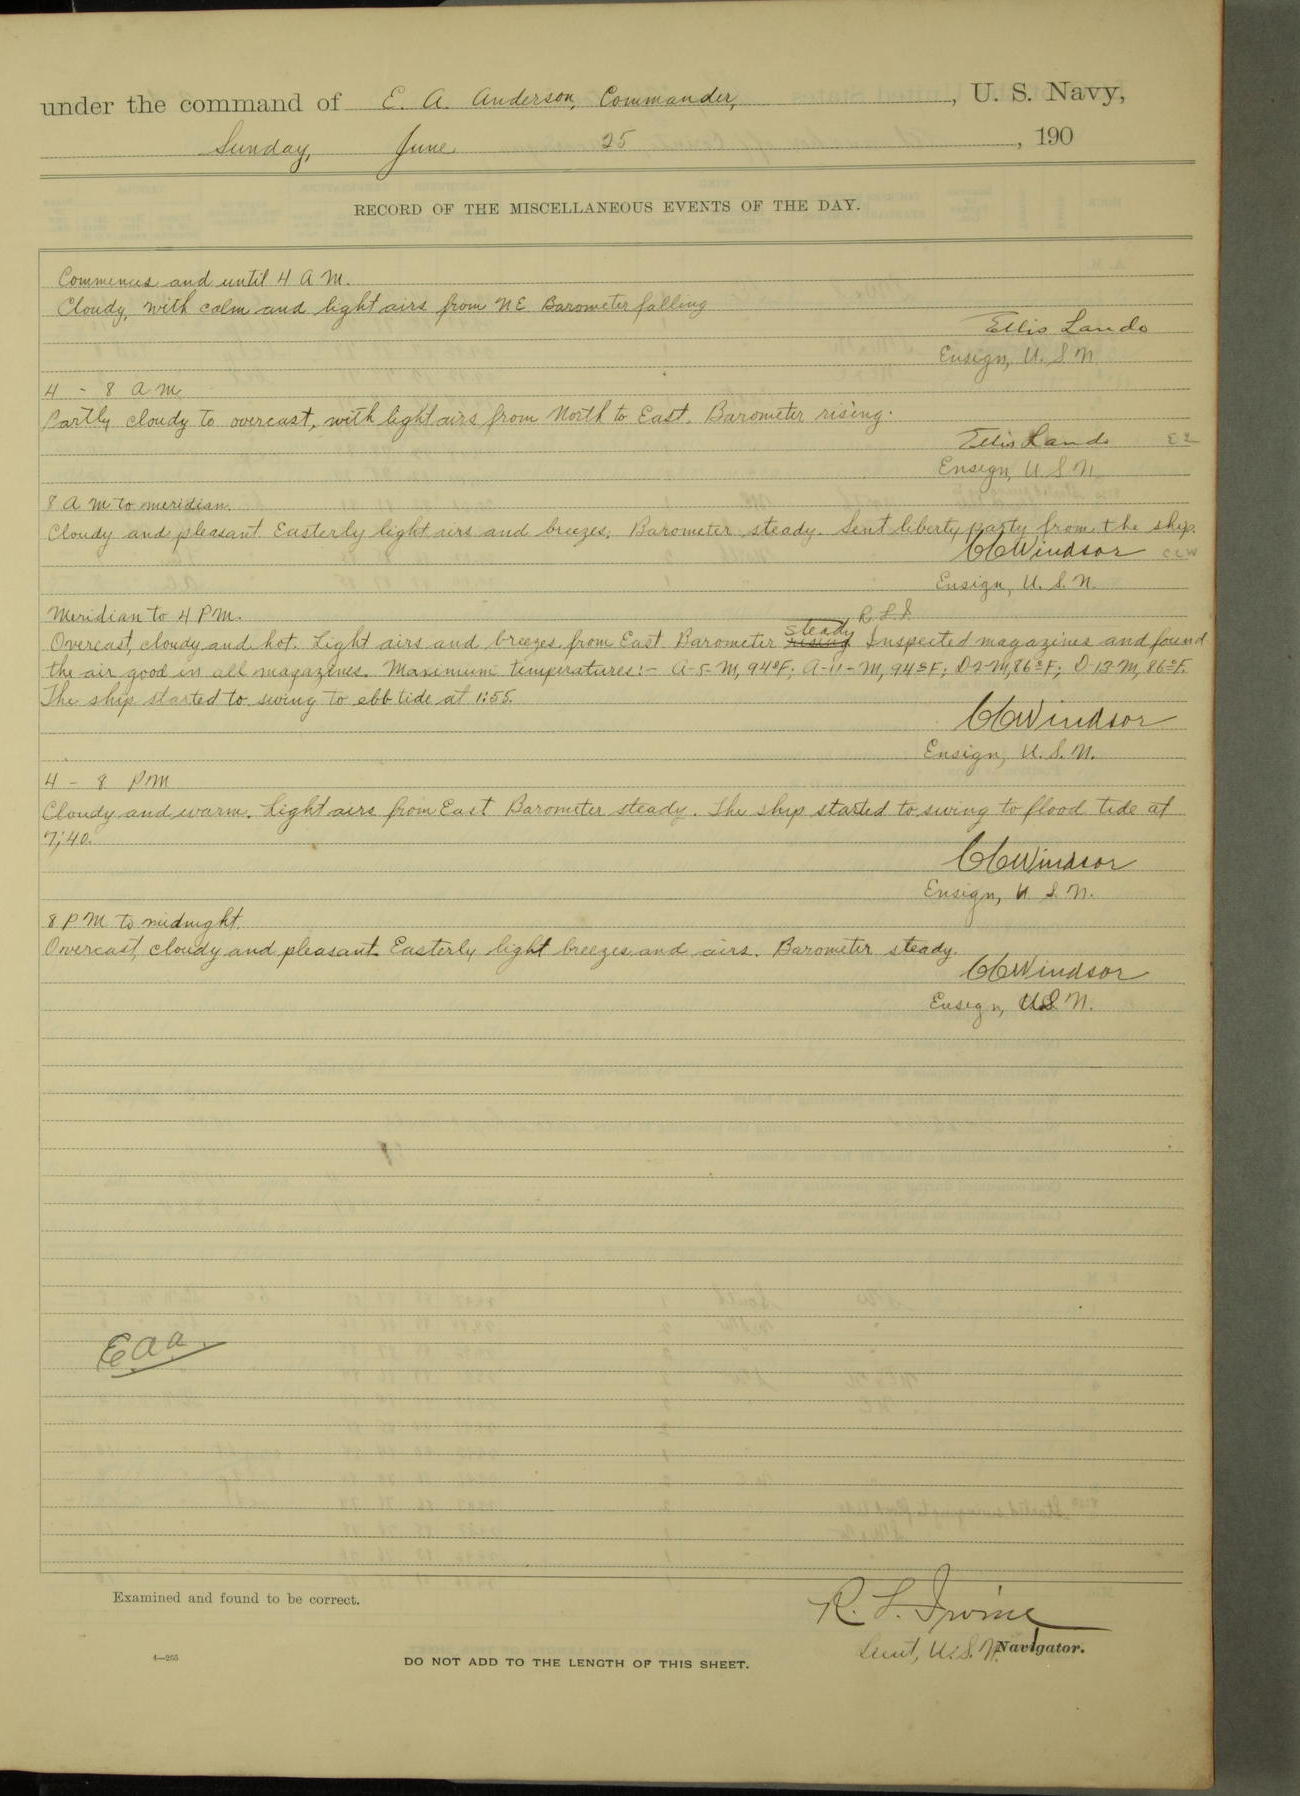 under the command of E. A. Anderson, Commander, , U. S. Navy,
Sunday, June 25 , 190
RECORD OF THE MISCELLANEOUS EVENTS OF THE DAY.
Commences and until 4 A M.
Cloudy, with calm and light airs from NE Barometer falling
Ellis Lando
Ensign, U. S N
4 - 8 A M
Partly cloudy to overcast, with light airs from North to East. Barometer rising.
Ellis Lando EL
Ensign, U S N.
8 A M to meridian.
Cloudy and pleasant. Easterly light airs and breezes. Barometer steady. Sent liberty party from the ship.
CCWindsor CCW
Ensign, U. S. N.
Meridian to 4 PM. R L I
steady
Overcast, cloudy and hot. Light airs and breezes from East Barometer rising Inspected magazines and found
the air good in all magazines. Maximum temperatures:- A-5-M, 94°F; A-11-M, 94°F; D-2-M, 86°F; D-13-M, 86°F.
The ship started to swing to ebb tide at 1:55.
CCWindsor
Ensign, U. S. N.
4 - 8 PM
Cloudy and warm. Light airs from East Barometer steady. The ship started to swing to flood tide at
7:40.
CCWindsor
Ensign, U S. N.
8 P M to midnight.
Overcast, cloudy and pleasant. Easterly light breezes and airs. Barometer steady.
CCWindsor
Ensign, U.S. N.
E a a.
Examined and found to be correct.
R. L. Irvine
Lieut, U. S. N. Navigator.
4—255
DO NOT ADD TO THE LENGTH OF THIS SHEET.